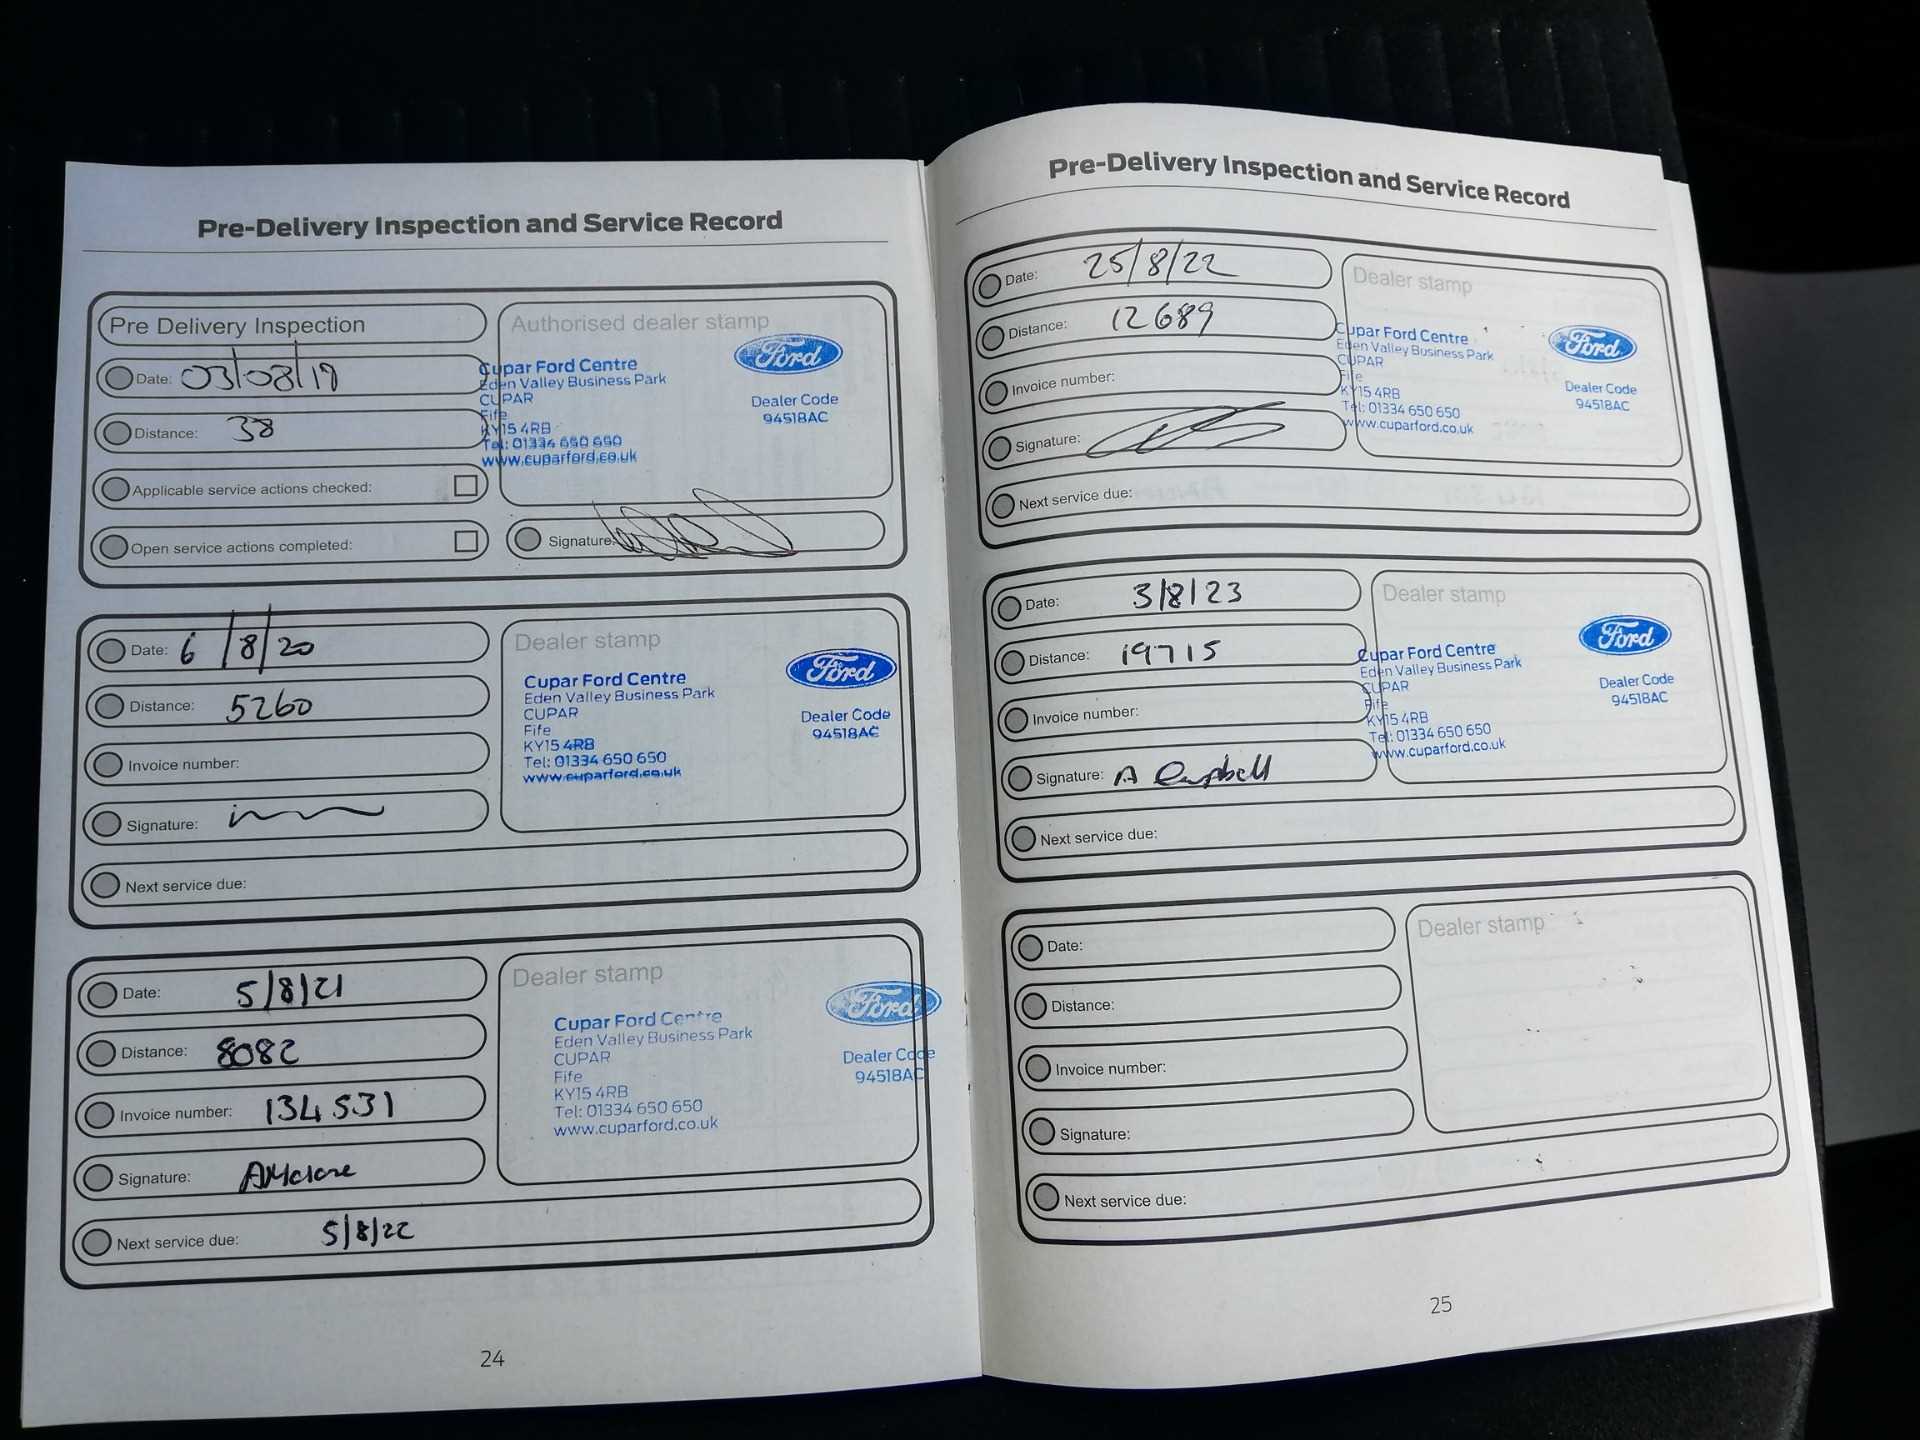 Pre-Delivery Inspection and Service Record
Pre Delivery Inspection
Date: 03/08/19
Distance: 38
Applicable service actions checked:
Open service actions completed:
Authorised dealer stamp
Ford
Cupar Ford Centre
Eden Valley Business Park
CUPAR
Fife
KY15 4RB
Tel: 01334 650 650
www.cuparford.co.uk
Dealer Code
94518AC
Signature:
Date: 6/8/20
Distance: 5260
Invoice number:
Signature:
Next service due:
Dealer stamp
Ford
Cupar Ford Centre
Eden Valley Business Park
CUPAR
Fife
KY15 4RB
Tel: 01334 650 650
www.cuparford.co.uk
Dealer Code
94518AC
Date: 5/8/21
Distance: 8082
Invoice number: 134531
Signature:
Next service due: 5/8/22
Dealer stamp
Ford
Cupar Ford Centre
Eden Valley Business Park
CUPAR
Fife
KY15 4RB
Tel: 01334 650 650
www.cuparford.co.uk
Dealer Code
94518AC
24
Pre-Delivery Inspection and Service Record
Date: 25/8/22
Distance: 12689
Invoice number:
Signature:
Next service due:
Dealer stamp
Ford
Cupar Ford Centre
Eden Valley Business Park
CUPAR
Fife
KY15 4RB
Tel: 01334 650 650
www.cuparford.co.uk
Dealer Code
94518AC
Date: 3/8/23
Distance: 19715
Invoice number:
Signature: A Campbell
Next service due:
Dealer stamp
Ford
Cupar Ford Centre
Eden Valley Business Park
CUPAR
Fife
KY15 4RB
Tel: 01334 650 650
www.cuparford.co.uk
Dealer Code
94518AC
Date:
Distance:
Invoice number:
Signature:
Next service due:
Dealer stamp
25